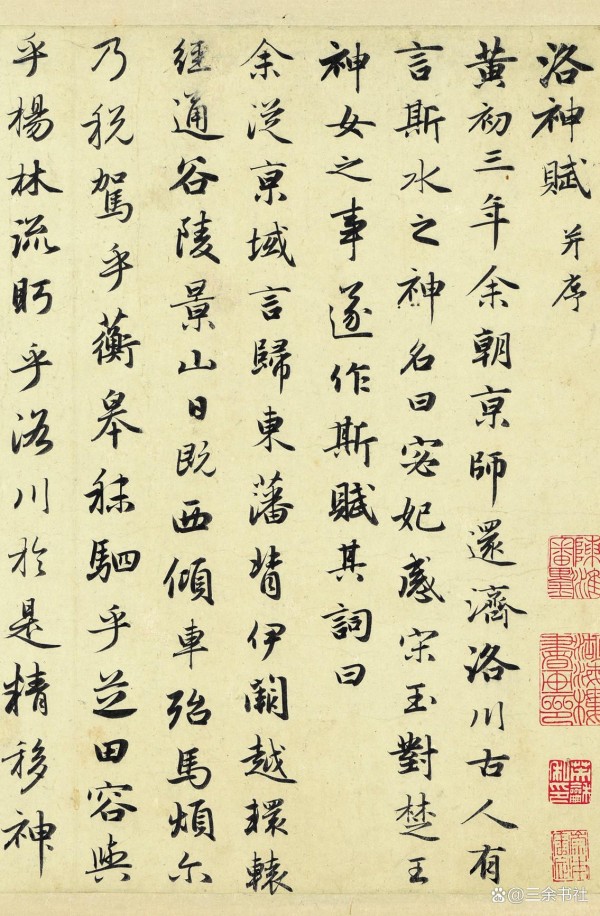 洛神賦 并序
黃初三年余朝京師還濟洛川古人有
言斯水之神名曰宓妃感宋玉對楚王
神女之事遂作斯賦其詞曰
余從京域言歸東藩背伊闕越轘轅
經通谷陵景山日既西傾車殆馬煩尔
乃税駕乎蘅皋秣駟乎芝田容與
乎楊林流眄乎洛川於是精移神
@三余书社